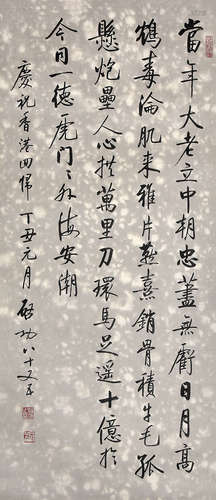 當年大老立中朝忠藎無虧日月高
毒淪肌来雅片熹銷骨積牛毛孤
懸炮壘人心拱萬里刀環馬足遥十億於
今同一德虎門外海安潮
慶祝香港回歸 丁丑元月 啟功八十又五